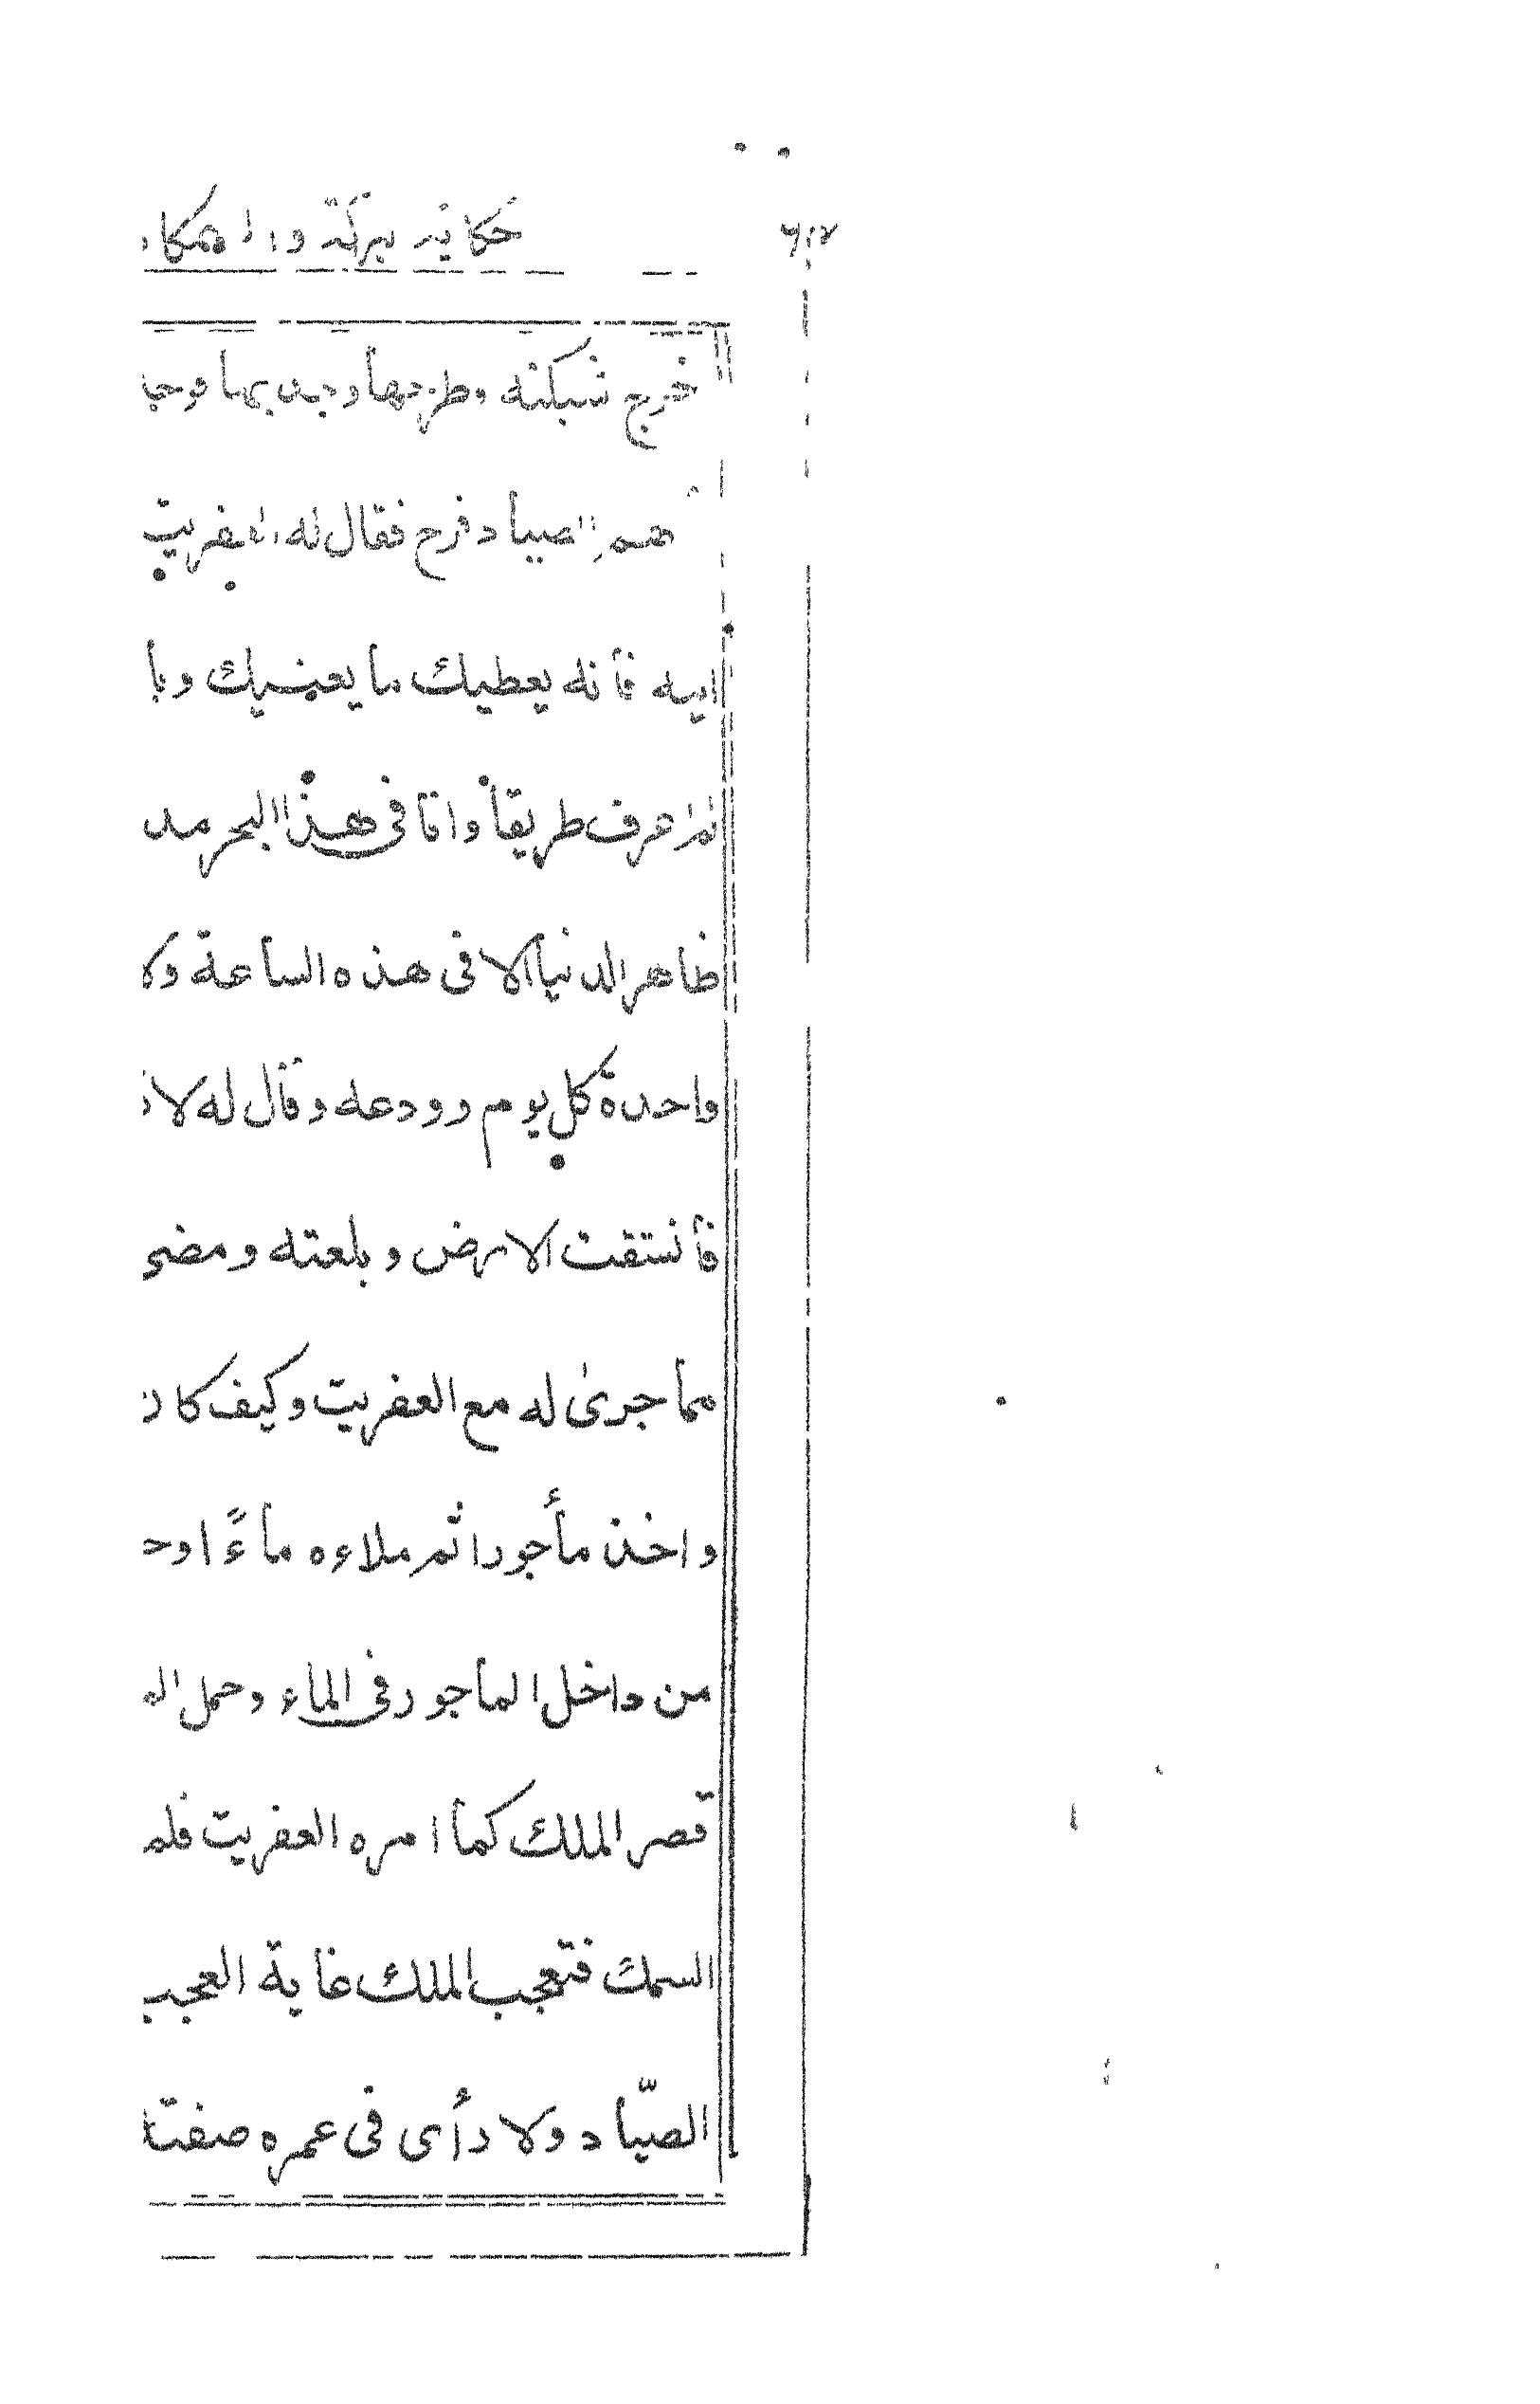 حكاية بركة و
خرج شبكته وطرحها وجدبها فوجد
هم الصياد فرح فقال له العفريت
اليه فأنه يعطيك ما يعينيك وبا
لم اعرف طريقاً وانا فى هذا البحر مد
ظاهر الدنيا الا فى هذه الساعة ولا
واحدة كل يوم وودعه وقال له لا
فأنشقت الارض وبلعته ومضى
مما جرى له مع العفريت وكيف كان
واخذ مأجورا ثم ملاءه ماءً اوحـ
من داخل المأجور فى الماء وحمل الـ
قصر الملك كما امره العفريت فلم
السمك فتعجب الملك غاية العجب
الصيّاد ولا رأى فى عمره صفتا